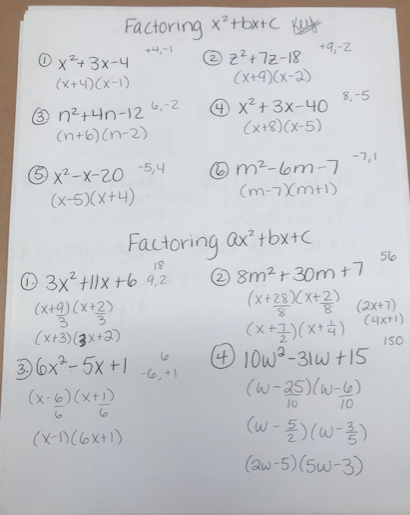 Factoring x²+bx+c Key
① x²+3x-4 +4,-1
(x+4)(x-1)
② z²+7z-18 +9,-2
(x+9)(x-2)
③ n²+4n-12 6,-2
(n+6)(n-2)
④ x²+3x-40 8,-5
(x+8)(x-5)
⑤ x²-x-20 -5,4
(x-5)(x+4)
⑥ m²-6m-7 -7,1
(m-7)(m+1)
Factoring ax²+bx+c
①. 3x²+11x+6 18 9,2
(x+9/3)(x+2/3)
(x+3)(3x+2)
② 8m²+30m+7 56
(x+28/8)(x+2/8)
(x+7/2)(x+1/4)
(2x+7)
(4x+1)
③. 6x²-5x+1 6 -6,+1
(x-6/6)(x+1/6)
(x-1)(6x+1)
④ 10w²-31w+15 150
(w-25/10)(w-6/10)
(w-5/2)(w-3/5)
(2w-5)(5w-3)